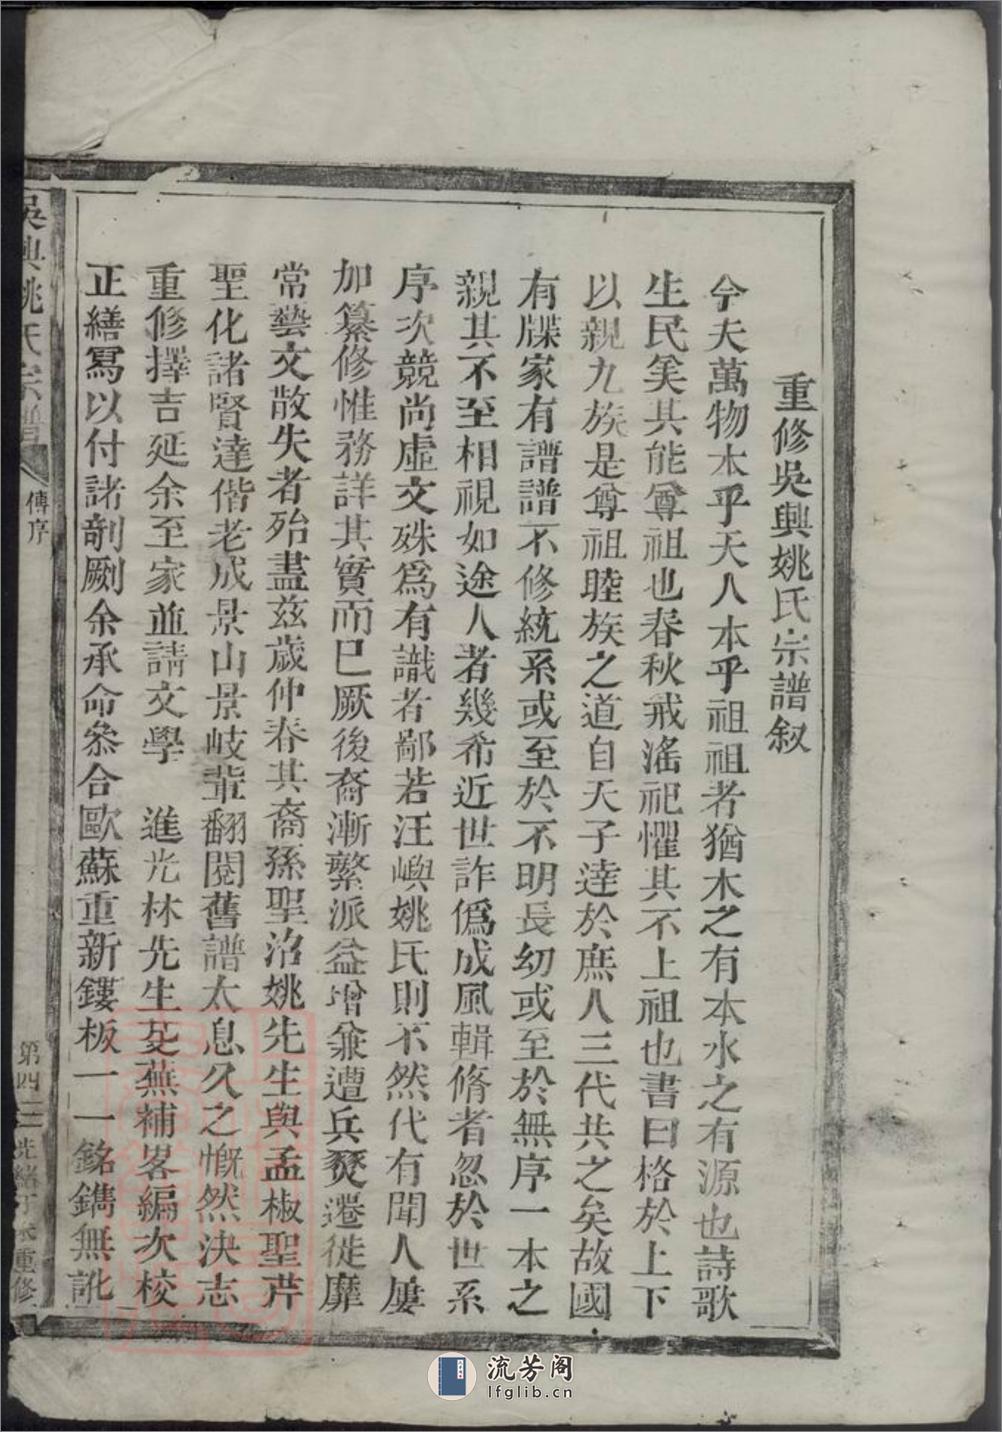 重修吳興姚氏宗譜叙
今夫萬物本乎天人本乎祖祖者猶木之有本水之有源也詩歌
生民矣其能尊祖也春秋戒滛祀懼其不上祖也書曰格於上下
以親九族是尊祖睦族之道自天子達於庶人三代共之矣故國
有牒家有譜譜不修統系或至於不明長幼或至於無序一本之
親其不至相視如途人者幾希近世詐僞成風輯脩者忽於世系
序次競尚虛文殊爲有識者鄙若汪嶼姚氏則不然代有聞人屢
加纂修惟務詳其實而已厥後裔漸繁派益增兼遭兵燹遷徙靡
常藝文散失者殆盡兹歲仲春其裔孫聖沼姚先生與孟椒聖芹
聖化諸賢達偕老成景山景岐輩翻閱舊譜太息久之慨然決志
重修擇吉延余至家並請文學　進光林先生芟蕪補畧編次校
正繕寫以付諸剞劂余承命叅合歐蘇重新鏤板一一銘鐫無訛
吳興姚氏宗譜
傳序
第四
光緒丁 重修
流芳阁
lfglib.cn